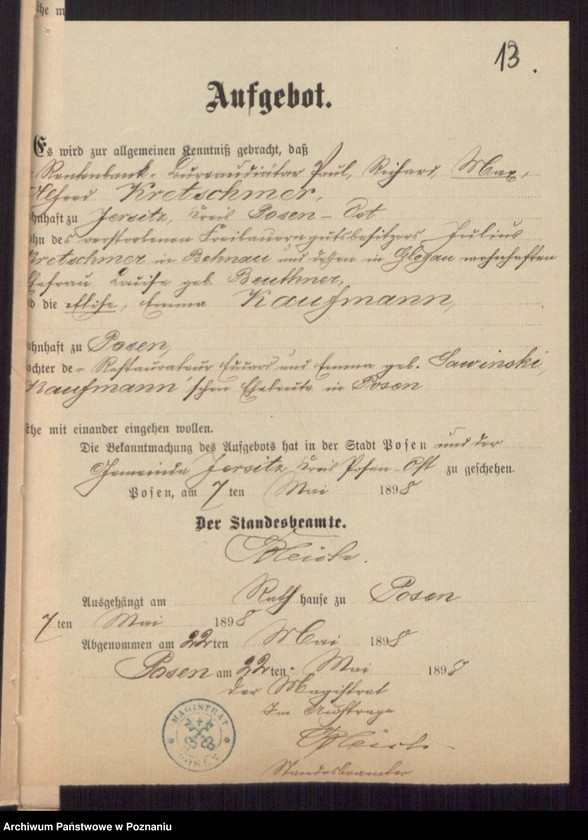 the m
13.
Aufgebot.
Es wird zur allgemeinen Kenntniß gebracht, daß
Rentenbank-Bureaudiätar Paul, Richard, Max,
Alfred Kretschmer,
ohnhaft zu Jersitz, Kreis Posen-Ost
ohn des verstorbenen Freibauerngutsbesitzers Julius
Kretschmer in Behnau und dessen in Glogau wohnhaften
Ehefrau Luise geb. Beuthner,
d die Elise, Emma Kaufmann,
ohnhaft zu Posen,
ochter der Restaurateur Eduard und Emma geb. Sawinski,
Kaufmann'schen Eheleute in Posen
Ehe mit einander eingehen wollen.
Die Bekanntmachung des Aufgebots hat in der Stadt Posen und der
Gemeinde Jersitz, Kreis Posen-Ost zu geschehen.
Posen, am 7 ten Mai 1898
Der Standesbeamte.
Ausgehängt am Rathhause zu Posen
7 ten Mai 1898
Abgenommen am 22 ten Mai 1898
Posen am 22 ten Mai 1898
Der Magistrat
Im Auftrage
Standesbeamter
MAGISTRAT
POSEN
Archiwum Państwowe w Poznaniu